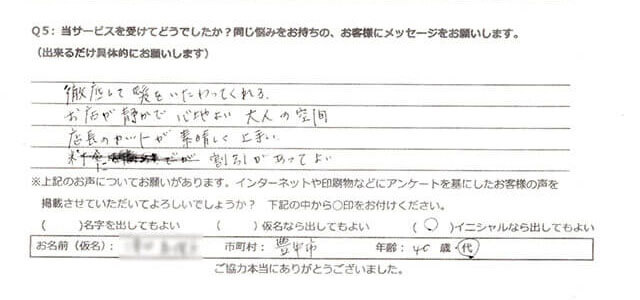 Q5：当サービスを受けてどうでしたか？同じ悩みをお持ちの、お客様にメッセージをお願いします。
（出来るだけ具体的にお願いします）
徹底して髪をいたわってくれる。
お店が静かで 心地よい 大人の空間
店長のカットが 素晴しく 上手い
割引があってよい
※上記のお声についてお願いがあります。インターネットや印刷物などにアンケートを基にしたお客様の声を
掲載させていただいてよろしいでしょうか？　下記の中から○印をお付けください。
（　　）名字を出してもよい　（　　）仮名なら出してもよい　（ ○ ）イニシャルなら出してもよい
お名前（仮名）：　市町村： 豊中市　年齢： 40 歳・代
ご協力本当にありがとうございました。